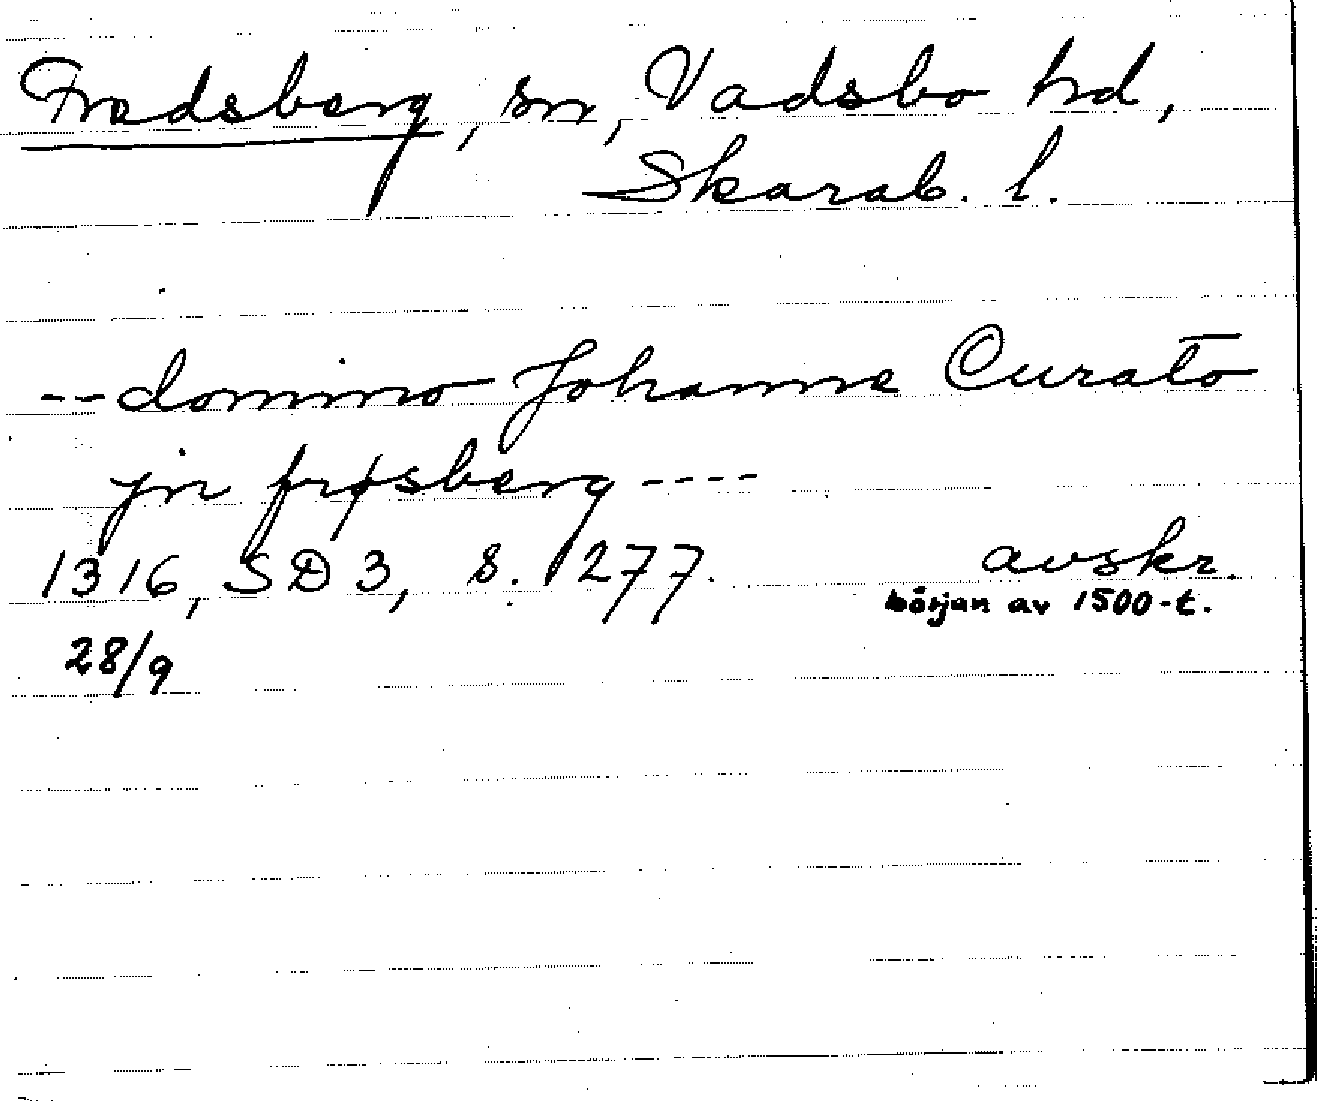 Fredsberg, sn, Vadsbo hd,
Skarab. l.
--domino Johanne Curato
jn frøsberg----
1316, SD 3, s. 277. avskr.
28/9 början av 1500-t.